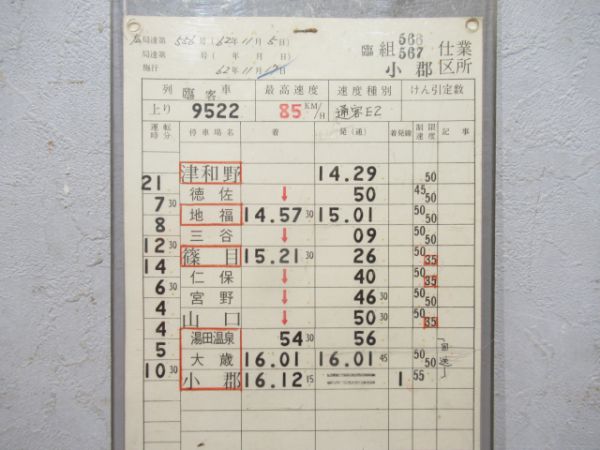 広局達第 556 号 (62年11月5日)
局達第 号 ( 年 月 日)
施行 62.11.17日
臨 組 566 567 仕業
小郡 区所
列車 臨客 最高速度 速度種別 けん引定数
上り 9522 85 KM/H 通客E2
運転時分 停車場名 着 発(通) 着発線 制限速度 記事
津和野 14.29 50
21 徳佐 ↓ 50 45 50
7 30 地福 14.57 30 15.01 50 50
8 三谷 ↓ 09 50
12 30 篠目 15.21 30 26 50 35
14 仁保 ↓ 40 50 35
6 30 宮野 ↓ 46 30 50 50
4 山口 ↓ 50 30 50 35
4 湯田温泉 54 30 56
5 大歳 16.01 16.01 45 50 50 回送
10 30 小郡 16.12 15 1 55